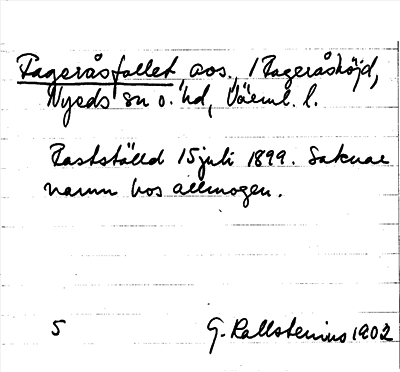 Fageråsfallet, avs., i Fageråshöjd,
Nyeds sn o. hd, Värml. l.
Fastställd 15 juli 1899. Saknar
namn hos allmogen.
5 G. Kallstenius 1902